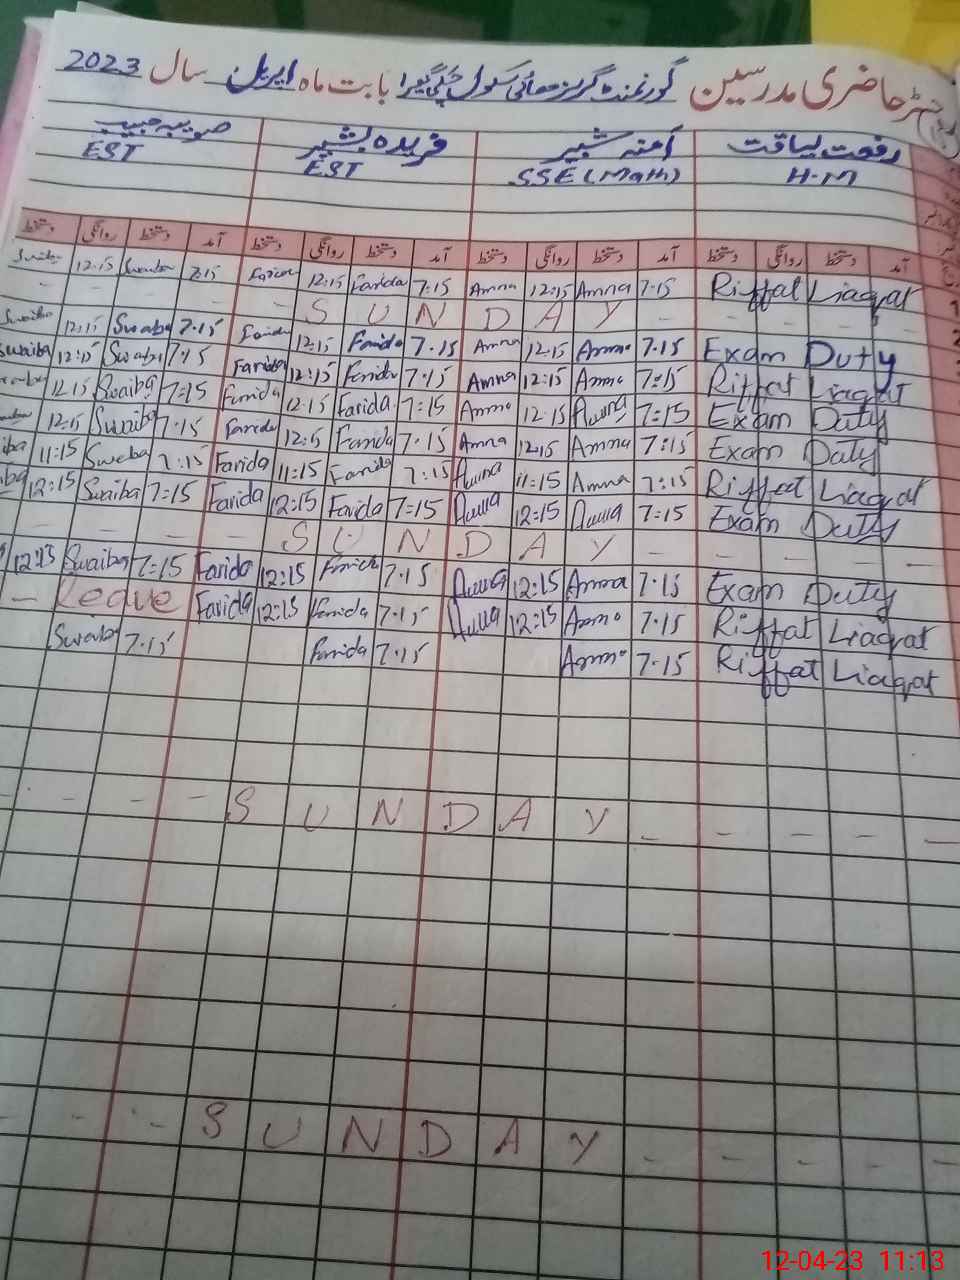 رجسٹر حاضری مدرسین گورنمنٹ گرلز ھائی سکول بابت ماہ اپریل سال 2023
رفعت لیاقت آمنہ شبیر فریدہ بشیر صویبہ حبیب
H.M SSE (Math) EST EST
آمد دستخط روانگی دستخط آمد دستخط روانگی دستخط آمد دستخط روانگی دستخط آمد دستخط روانگی دستخط
Riffat Liaqat 7:15 Amna 12:15 Amna 7:15 Farida 12:15 Farida 7:15 Swaiba 12:15 Swaiba
- - - S U N D A Y - - - -
Exam Duty 7.15 Amna 12:15 Amna 7.15 Farida 12:15 Farida 7.15 Swaiba 12:15 Swaiba
Riffat Liaqat 7:15 Amna 12:15 Amna 7:15 Farida 12:15 Farida 7:15 Swaiba 12:15 Swaiba
Exam Duty 7:15 Amna 12.15 Amna 7:15 Farida 12.15 Farida 7:15 Swaiba 12.15
Exam Duty 7:15 Amna 12:15 Amna 7.15 Farida 12:15 Farida 7.15 Swaiba 12:15
Riffat Liaqat 7:15 Amna 11:15 Amna 7:15 Farida 11:15 Farida 7:15 Swaiba 11:15 iba
Exam Duty 7:15 Amna 12:15 Amna 7:15 Farida 12:15 Farida 7:15 Swaiba 12:15 iba
- - - S U N D A Y - - - - -
Exam Duty 7.15 Amna 12:15 Amna 7.15 Farida 12:15 Farida 7:15 Swaiba 12:15
Riffat Liaqat 7.15 Amna 12:15 Amna 7.15 Farida 12:15 Farida Leave -
Riffat Liaqat 7.15 Amna 7.15 Farida 7.15 Swaiba
- - - - S U N D A Y - - - - -
- - - S U N D A Y - - - - -
12-04-23 11:13